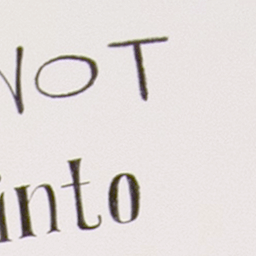 NOT
into